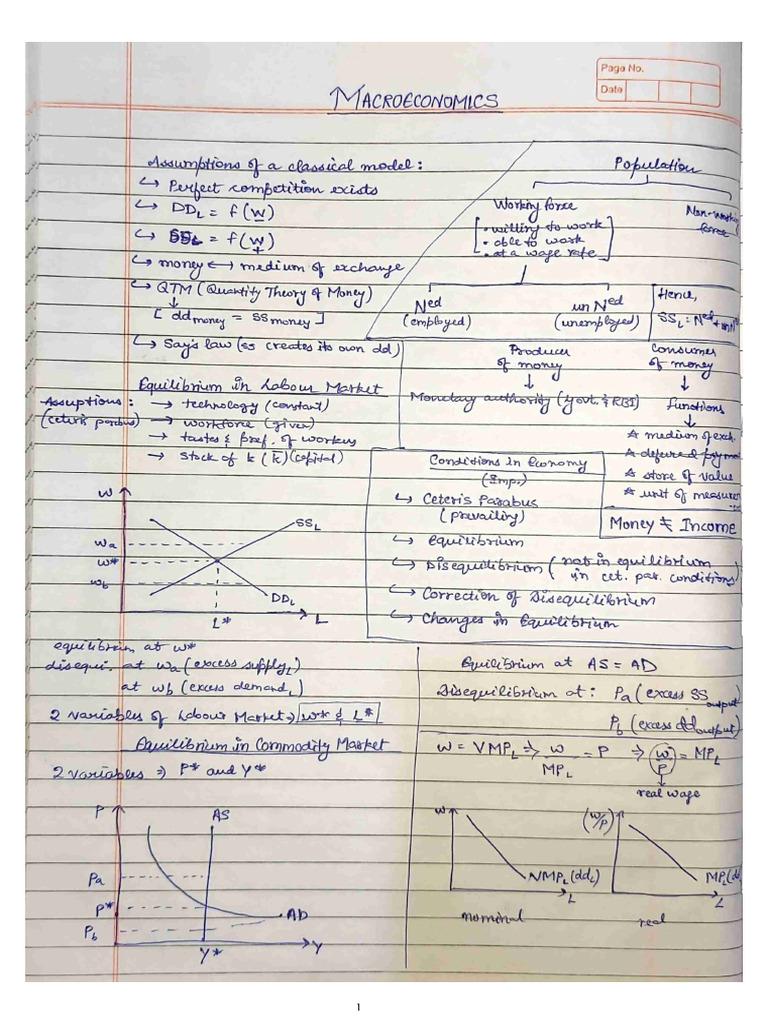 Page No.
Date
MACROECONOMICS
Assumptions of a classical model:
↳ Perfect competition exists
↳ DDL = f(w)
-
↳ SSL = f(w)
+
↳ money ↔ medium of exchange
↳ QTM (Quantity Theory of Money)
↓
[ddmoney = ssmoney]
↳ Say's law (ss creates its own dd)
Population
Working force
[• willing to work
• able to work
• at a wage rate]
Non-working
force
Ned
(employed)
unNed
(unemployed)
Hence,
SSL = Ned +
Producer
of money
↓
Monetary authority (Govt. & RBI)
Consumer
of money
↓
functions
↓
* medium of exch.
* deferred
* store of value
* unit of measure
Money ≠ Income
Equilibrium in Labour Market
Assuptions:
(ceteris parabus)
→ technology (constant)
→ workforce (given)
→ tastes & pref. of workers
→ stock of k (k̄) (capital)
Conditions in Economy
(Imp.)
↳ Ceteris Parabus
(prevailing)
↳ equilibrium
↳ Disequilibrium (not in equilibrium
in cet. par. conditions)
↳ Correction of Disequilibrium
↳ Changes in Equilibrium
W
SSL
Wa
W*
Wb
DDL
L*
L
equilibrium at w*
disequi. at wa (excess supplyL)
at wb (excess demandL)
2 variables of Labour Market ⇒ w* & L*
Equilibrium in Commodity Market
2 variables ⇒ P* and Y*
P
AS
Pa
P*
Pb
AD
Y*
Y
Equilibrium at AS = AD
Disequilibrium at: Pa (excess SSoutput)
Pb (excess ddoutput)
W = VMPL ⇒ W/MPL = P ⇒ W/P = MPL
real wage
W
VMPL (ddL)
L
nominal
(W/P)
MPL (dd
L
real
1